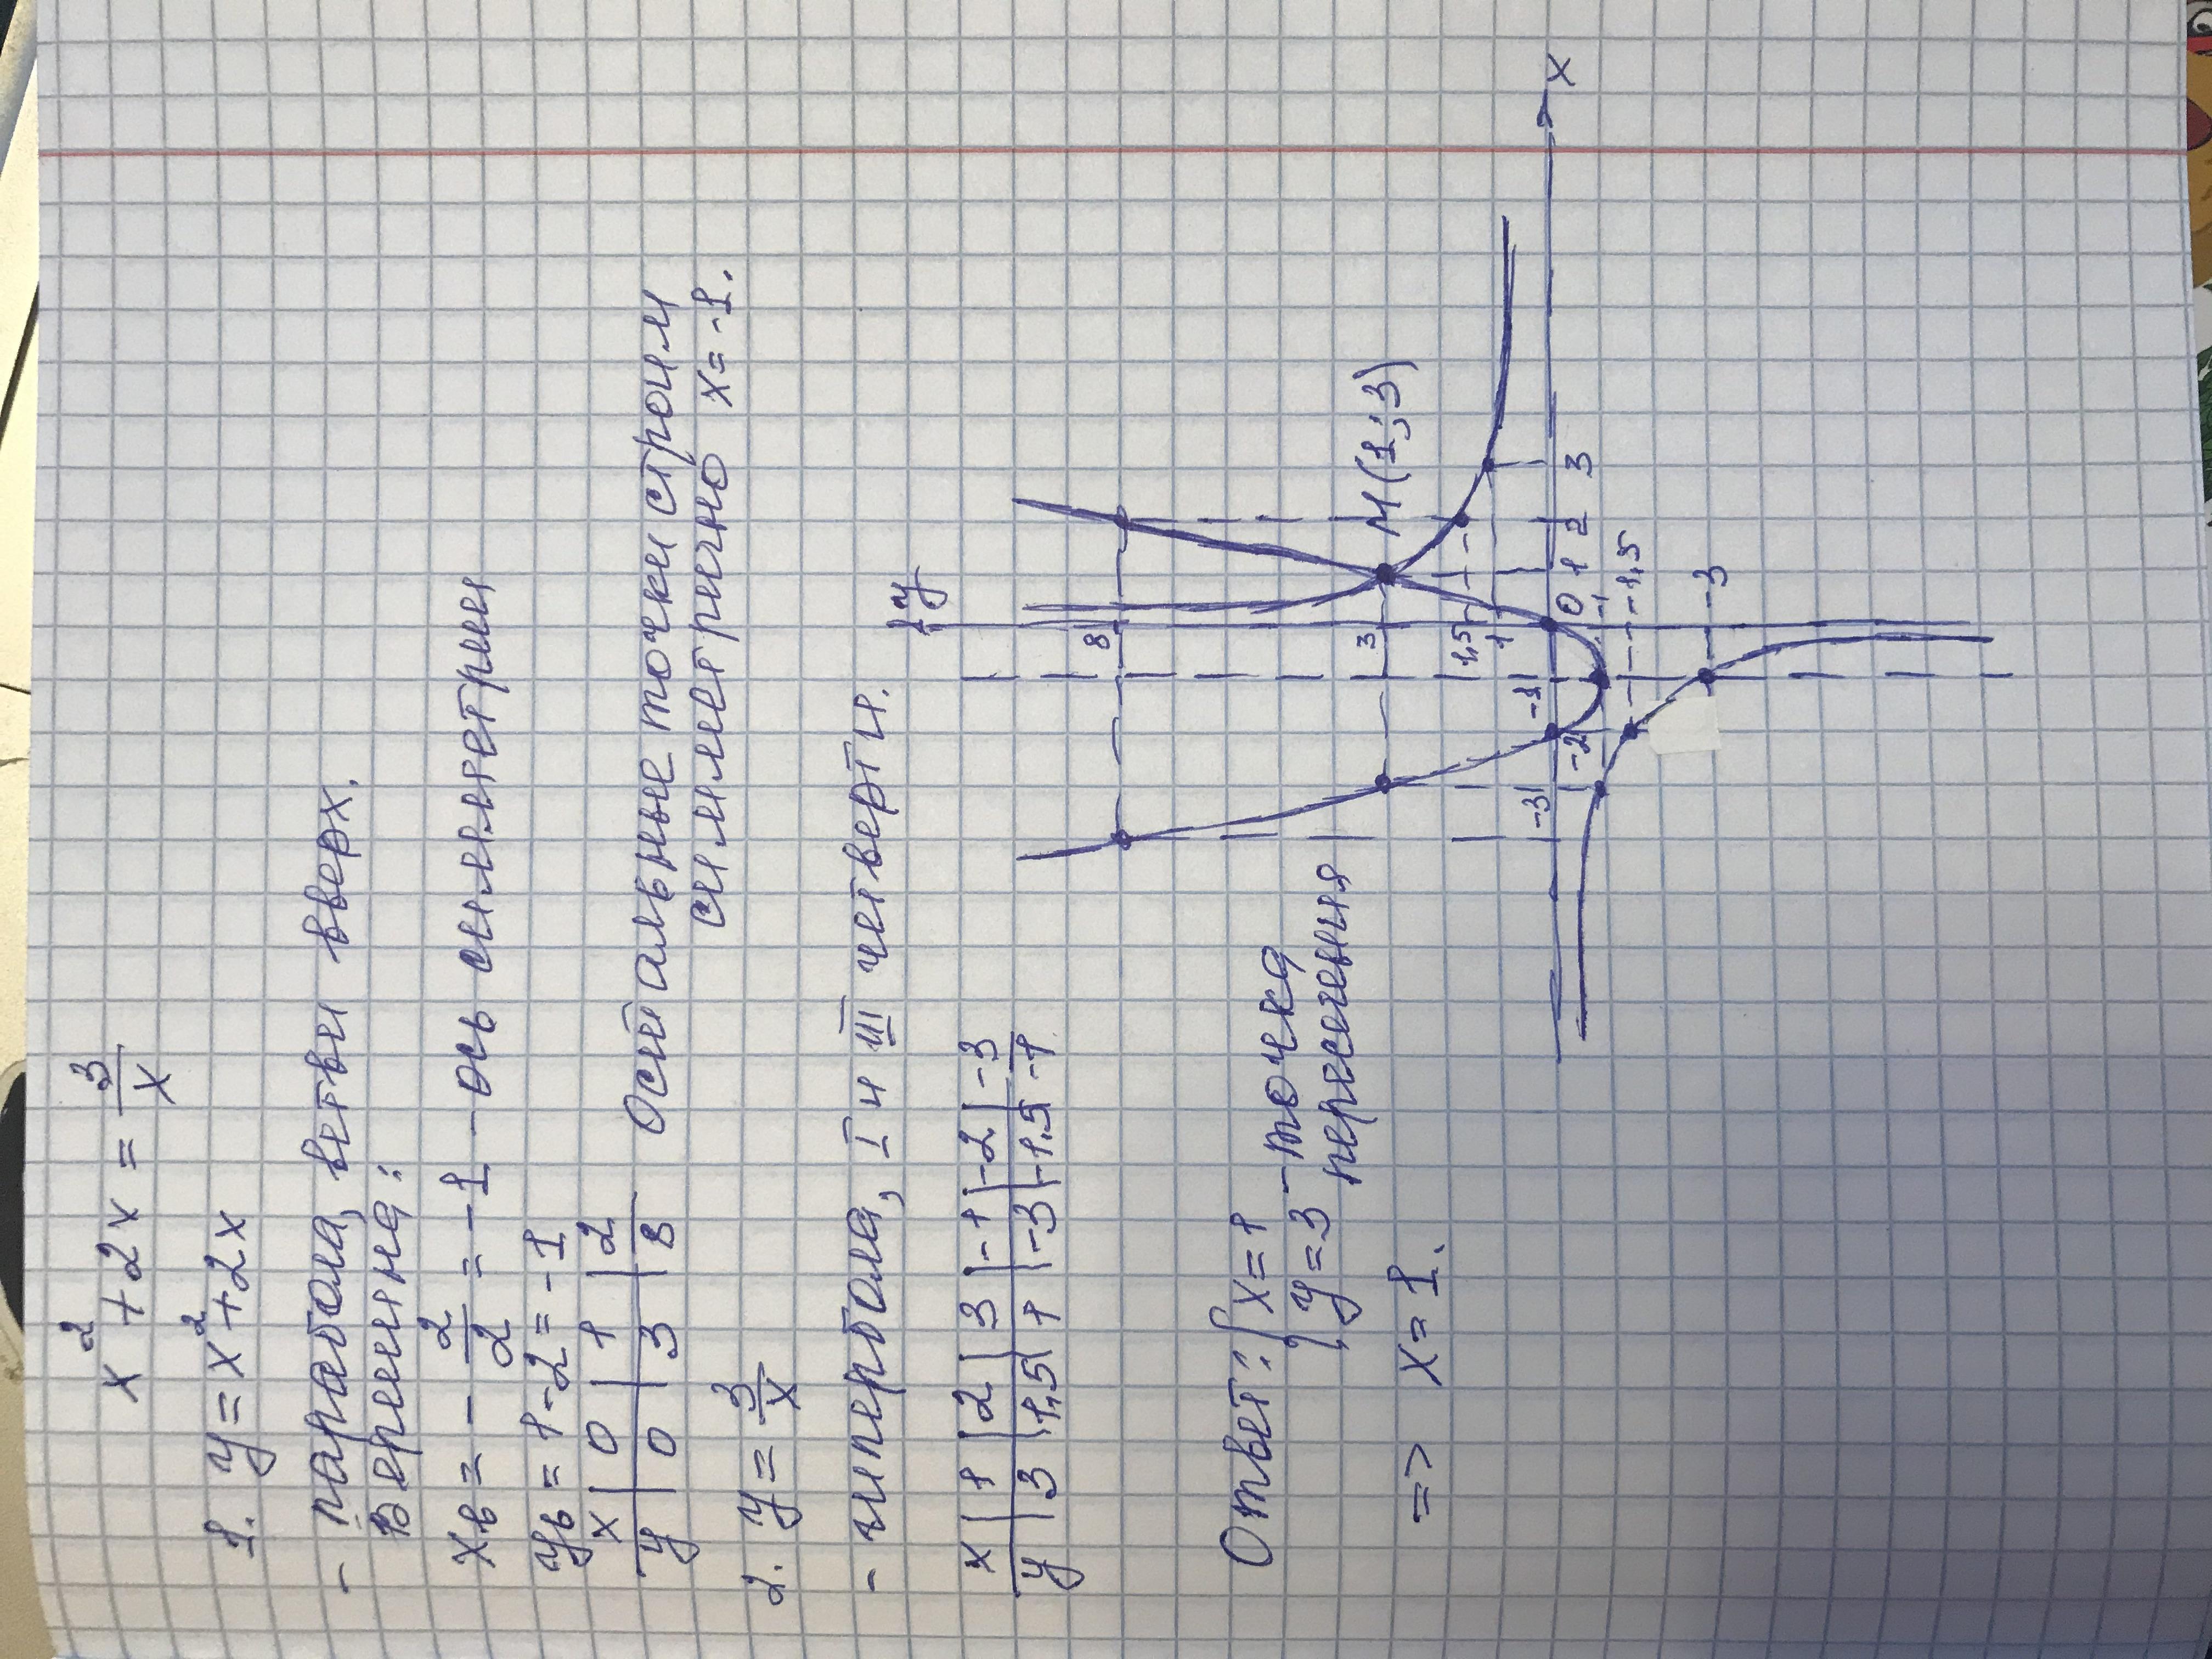 x² + 2x = 3/x
1. y = x² + 2x
- парабола, ветви вверх.
Вершина:
xв = - 2/2 = -1 - ось симметрии
yв = 1 - 2 = -1
x | 0 | 1 | 2
y | 0 | 3 | 8
Остальные точки строим
симметрично x = -1.
2. y = 3/x
- гипербола, I и III четверти.
x | 1 | 2 | 3 | -1 | -2 | -3
y | 3 | 1,5 | 1 | -3 | -1,5 | -1
Ответ: { x = 1
y = 3 - точка
пересечения
=> x = 1.
y
8
3
M(1;3)
1,5
1
-3 -2 -1 0 1 2 3
x
-1
-1,5
-3